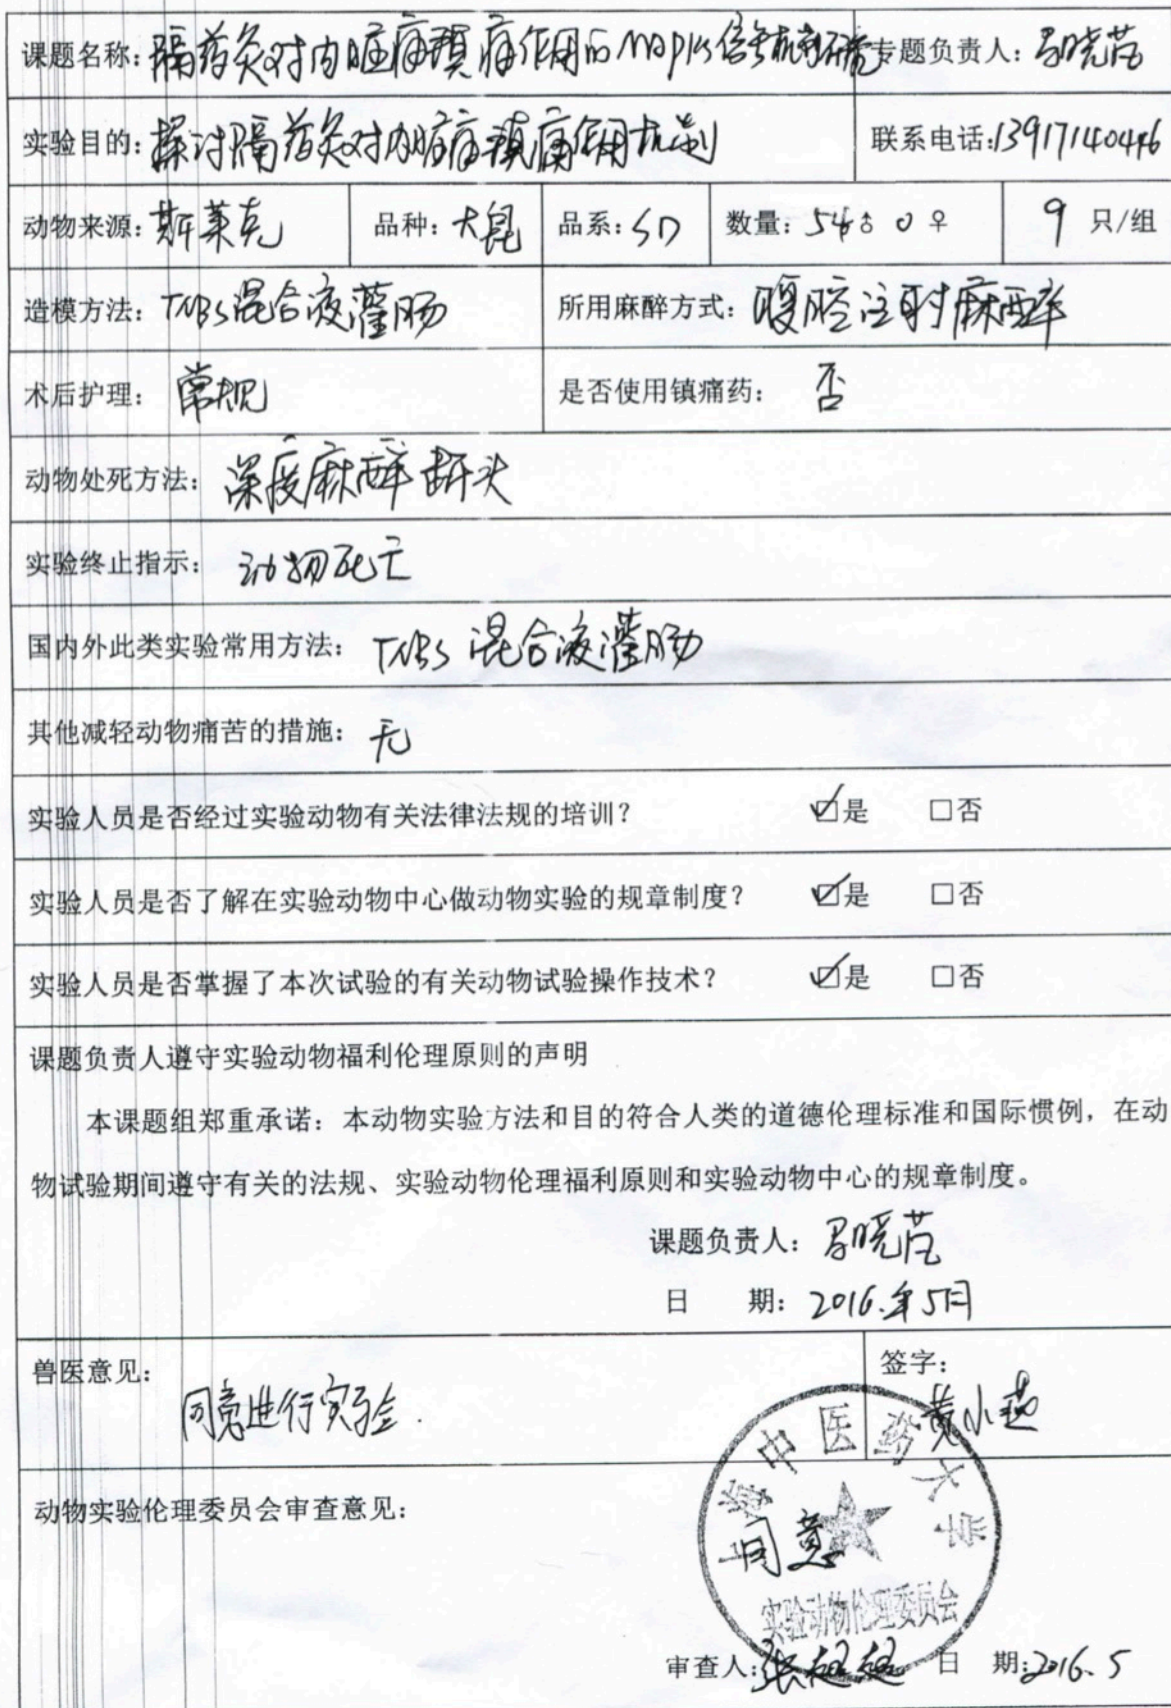 课题名称：隔药灸对内脏痛镇痛作用的MAPKs信号机制研究 专题负责人：马晓芃
实验目的：探讨隔药灸对内脏痛镇痛作用机制 联系电话：13917140446
动物来源：斯莱克 品种：大鼠 品系：SD 数量：54♂ 0♀ 9只/组
造模方法：TNBS混合液灌肠 所用麻醉方式：腹腔注射麻醉
术后护理：常规 是否使用镇痛药：否
动物处死方法：深度麻醉断头
实验终止指示：动物死亡
国内外此类实验常用方法：TNBS混合液灌肠
其他减轻动物痛苦的措施：无
实验人员是否经过实验动物有关法律法规的培训？ ☑是 □否
实验人员是否了解在实验动物中心做动物实验的规章制度？ ☑是 □否
实验人员是否掌握了本次试验的有关动物试验操作技术？ ☑是 □否
课题负责人遵守实验动物福利伦理原则的声明
本课题组郑重承诺：本动物实验方法和目的符合人类的道德伦理标准和国际惯例，在动
物试验期间遵守有关的法规、实验动物伦理福利原则和实验动物中心的规章制度。
课题负责人：马晓芃
日 期：2016.年5月
兽医意见： 签字：
同意进行实验. 黄小燕
中医药大学
动物实验伦理委员会审查意见：
同意
实验动物伦理委员会
审查人：张超超 日 期：2016.5